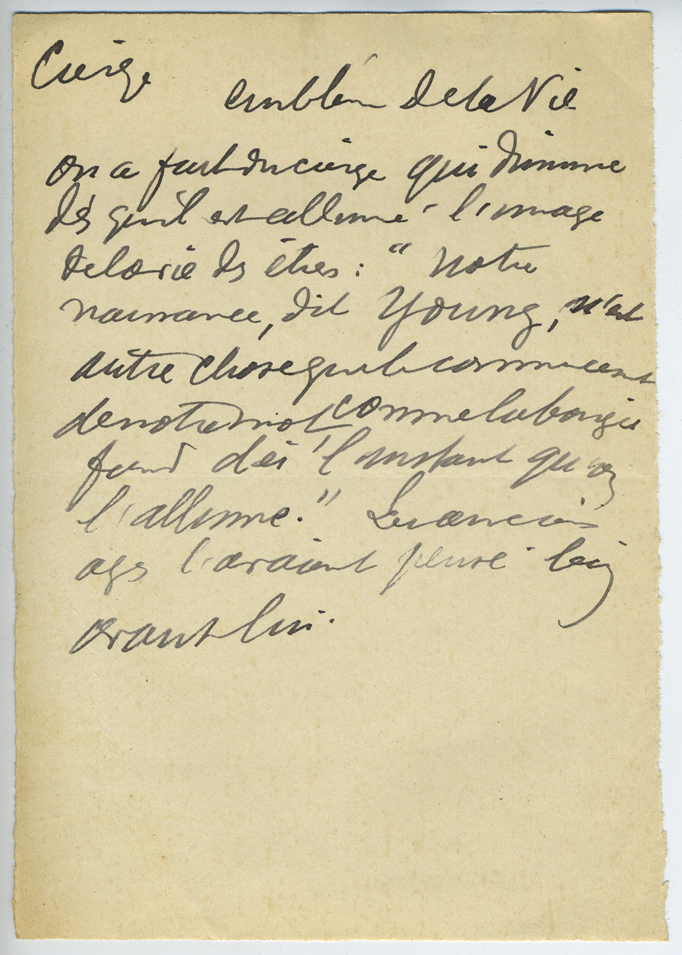 Cierge
emblème de la Vie
on a fait du cierge qui diminue
dès qu'il est allumé l'image
de la vie des êtres : " Notre
naissance, dit Young, n'est
autre chose que le commencement
de notre mort comme la bougie
fond dès l'instant qu'on
l'allume." Les anciens
ages l'avaient pensé bien
avant lui.